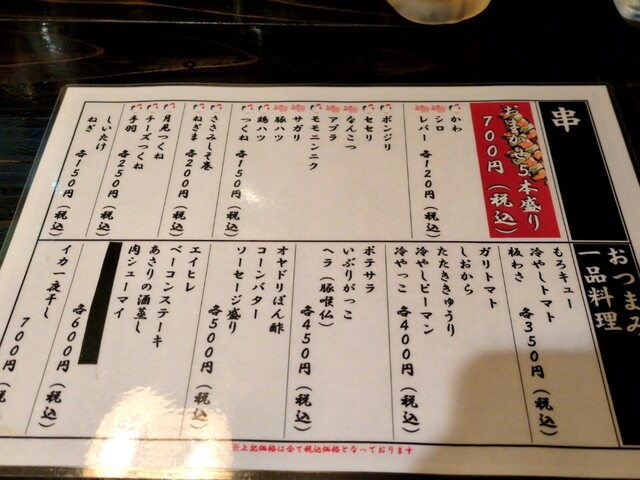 串
おまかせ5本盛り
700円（税込）
かわ
シロ
レバー
各120円（税込）
ボンジリ
セセリ
なんこつ
アブラ
モモニンニク
サガリ
豚ハツ
鶏ハツ
つくね
各150円（税込）
ささみしそ巻
ねぎま
各200円（税込）
月見つくね
チーズつくね
手羽
各250円（税込）
しいたけ
ねぎ
各150円（税込）
おつまみ
一品料理
もろキュー
冷やしトマト
板わさ
各350円（税込）
ガリトマト
しおから
たたききゅうり
冷やしピーマン
冷やっこ
各400円（税込）
ポテサラ
いぶりがっこ
ヘラ（豚喉仏）
各450円（税込）
オヤドリぽん酢
コーンバター
ソーセージ盛り
各500円（税込）
エイヒレ
ベーコンステーキ
あさりの酒蒸し
肉シューマイ
各600円（税込）
イカ一夜干し
700円（税込）
※上記価格は全て税込価格となっております